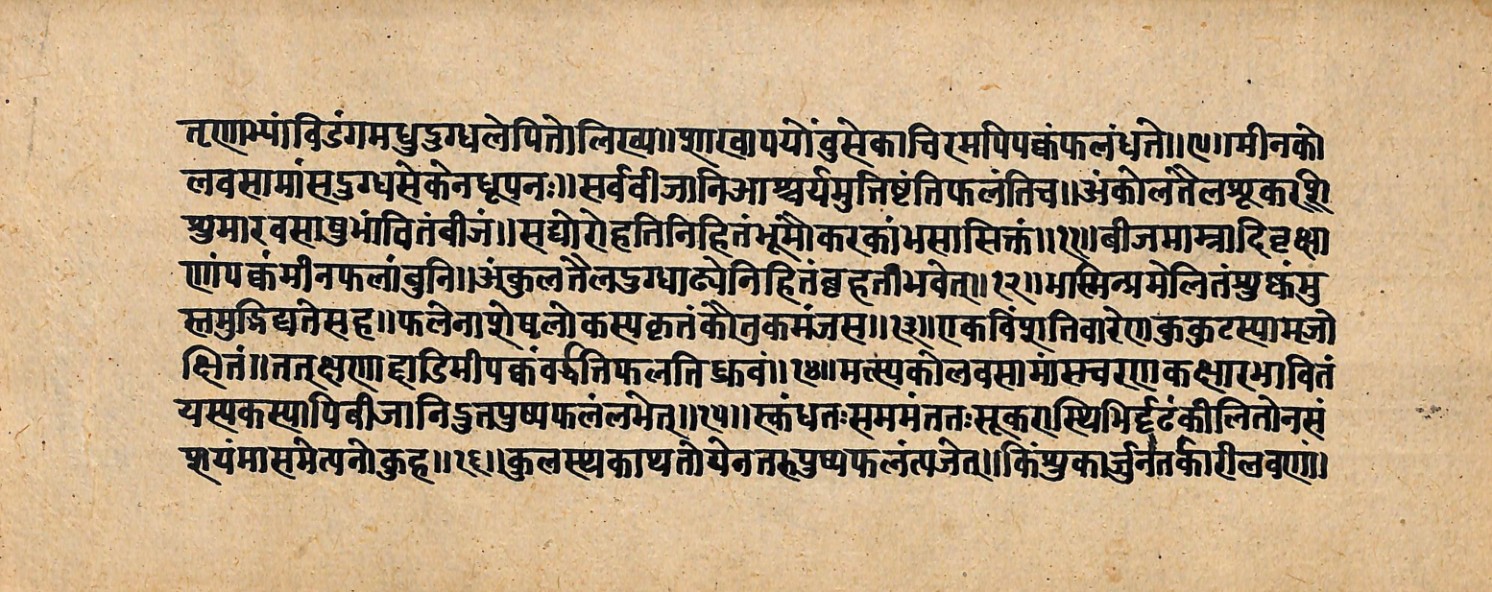 तृणाभ्यांविडंगमधुदुग्धलेपितोलिख्य॥शाखापयोंबुसेकाचिरमपिपक्कंफलंधत्ते॥९॥मीनको
लवसामांसदुग्धसेकेनधूपनः॥सर्वबीजानिआश्चर्यमुत्तिष्टंतिफलंतिच॥अंकोलंतैलशूकरशि
शुमारवसाषुभांवितंबीजं॥सद्योरोहतिनिहितंभूमौकरकांभसासिक्तं॥११॥बीजमाम्रादिवृक्षा
णांपक्कंमीनफलांबुनि॥अंकुलतैलदुग्धाढ्येनिहितंबृहतीभवेत्॥१२॥भास्मिन्प्रमेलितंशुष्कंमु
स्तमुद्भिद्यतेसह॥फलेनाशेषलोकस्यकृतंकौतुकमंजस॥१३॥एकविंशतिवारेणकुकुटस्यामृजो
क्षितं॥तत्क्षणाद्दाडिमीपक्कंवर्द्धत्तिफलतिध्रुवं॥१४॥मत्स्यकोलवसामांसचरणकक्षारभावितं
यस्यकस्यापिबीजानिद्रुतपुष्पफलंलभेत्॥१५॥स्कंधतःसममंततःसूकरास्थिभिर्दृढंकीलितोनसं
शयंमासमेत्यनोकुह॥१६॥कुलस्थकाथतोयेनतरुपुष्पफलंत्यजेत्॥किंशुकार्जुनंतर्कारीलवणं॥